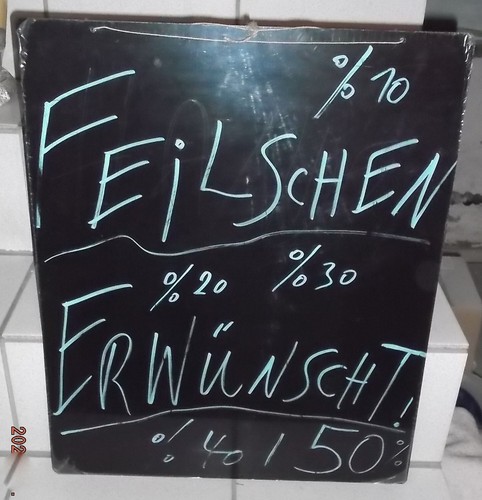 %10
FEiLSCHEN
%20 %30
ERWÜNSCHT!
%40 / 50%
202